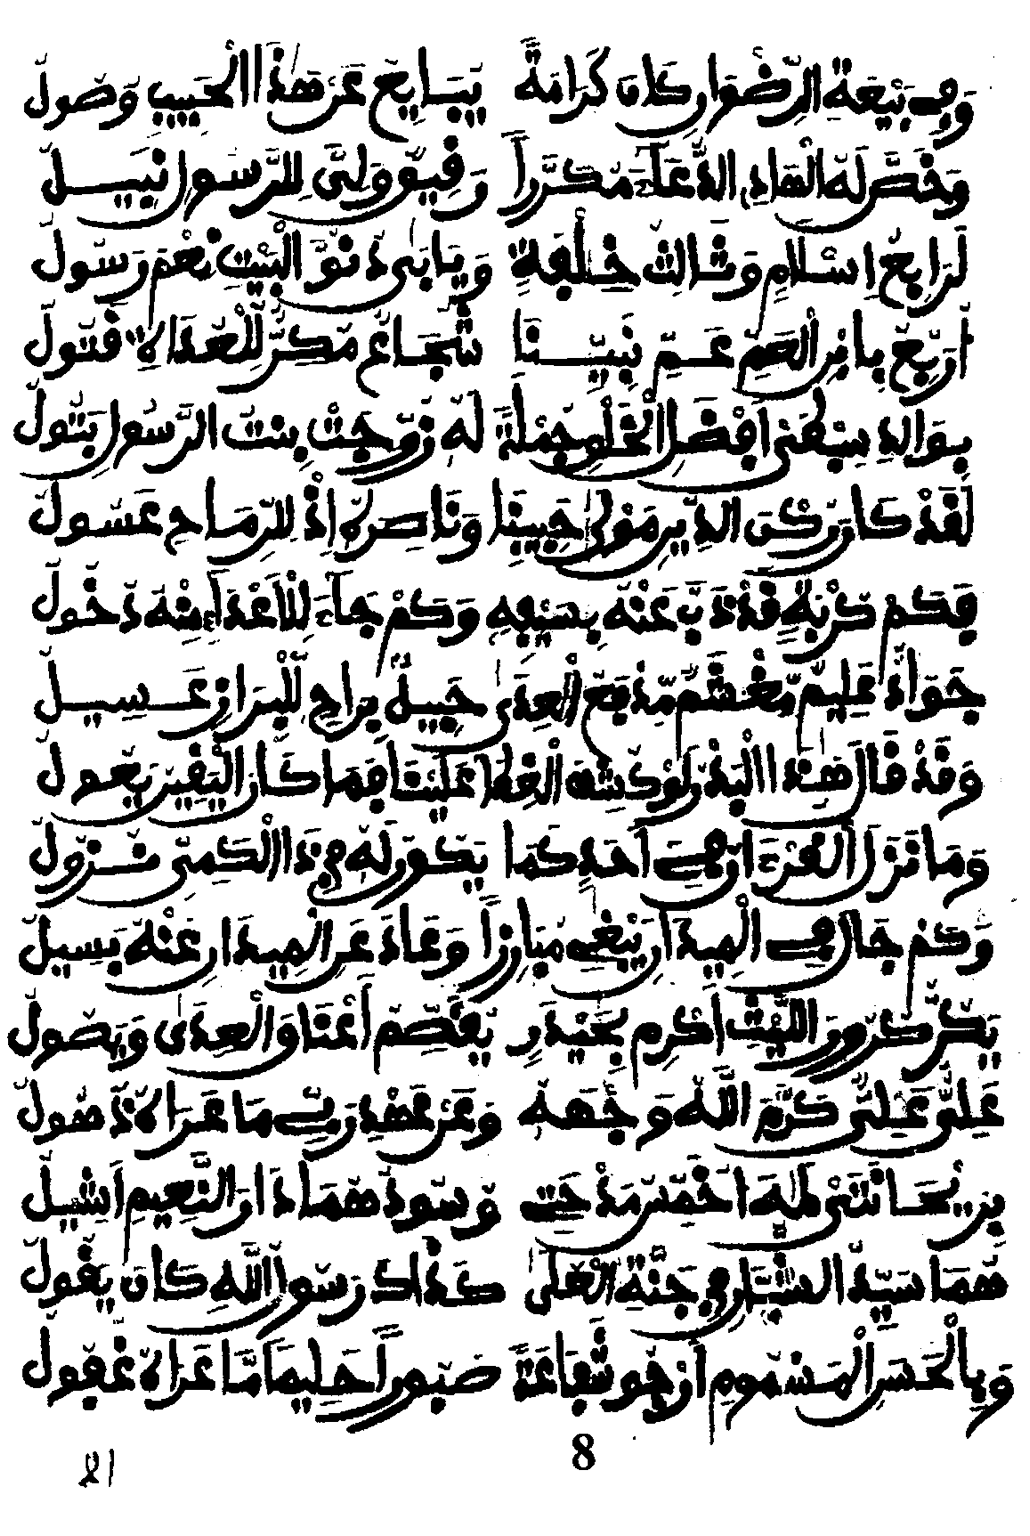 وفي بيعة الرضوان كان كرامة يبايع عن هذا الحبيب وصول
وخص له الهادي الدعاء مكررا وفيه ولي للرسول نبيل
لرابع إسلام وثالث خلفة ويا بى ذنو البيت نعم رسول
اربع بابن العم عم نبينا شجاع مكر للعداة قتول
بوالد سبطي أفضل الخلق جملة له زوجت بنت الرسول بتول
لقد كان ركن الدين مولى حبيبنا وناصره إذ للرماح عسول
فكم كربة قد ذب عنه بسيفه وكم جاء للأعداء منه دخول
جواد عليم مغشم مدفع العدى حبيب براح للبراز عسيل
وقد قال هذا البدر لو كشف الغطا علينا فما كان اليقين يعول
وما نزل القرءان في أحد كما يكون له في ذا الكمي نزول
وكم جال في الميدان يبغي مبارزا وعاد عن الميدان عنه يسيل
يكر كرور الليث أكرم بحيدر يقصم أعناق العدى ويصول
علي علي كرم الله وجهه وعن عهد ربي ما عراه ذهول
بريحانتي طه أخمس مدحتي وسود هما ذا ان النعيم أثيل
هما سيدا الشبان في جنة العلى كذاك رسول الله كان يقول
وبالحسن المسموم أرجو شفاعة صبورا حليما ما عراه غفول
8